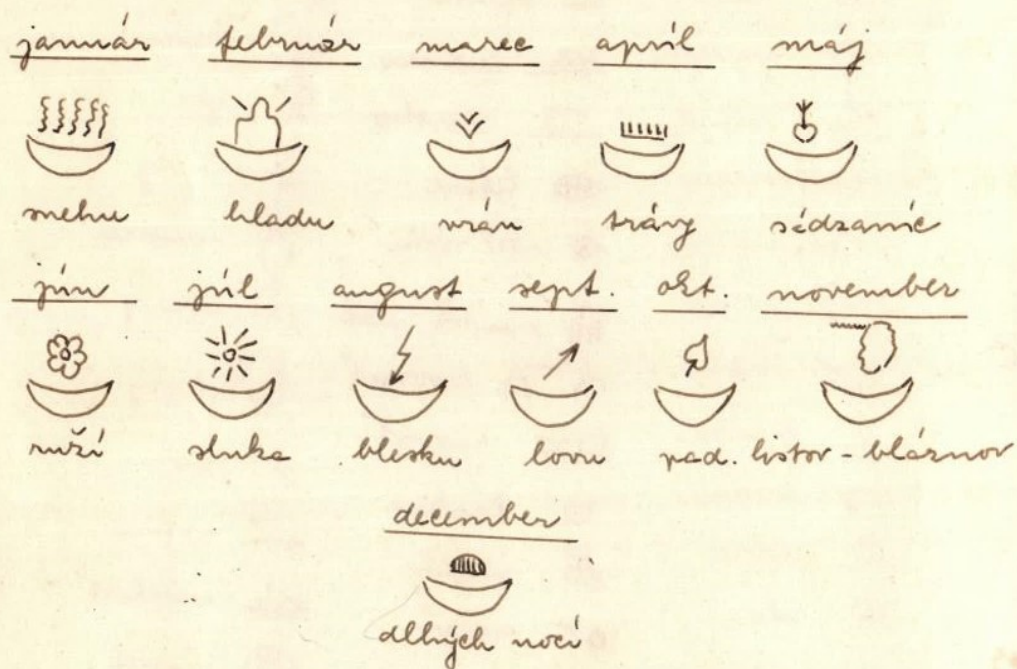 január február marec apríl máj
snehu hladu vrán trávy
jún júl august sept. okt. november
ruží slnka blesku lovu pad. listov - bláznov
december
dlhých nocí